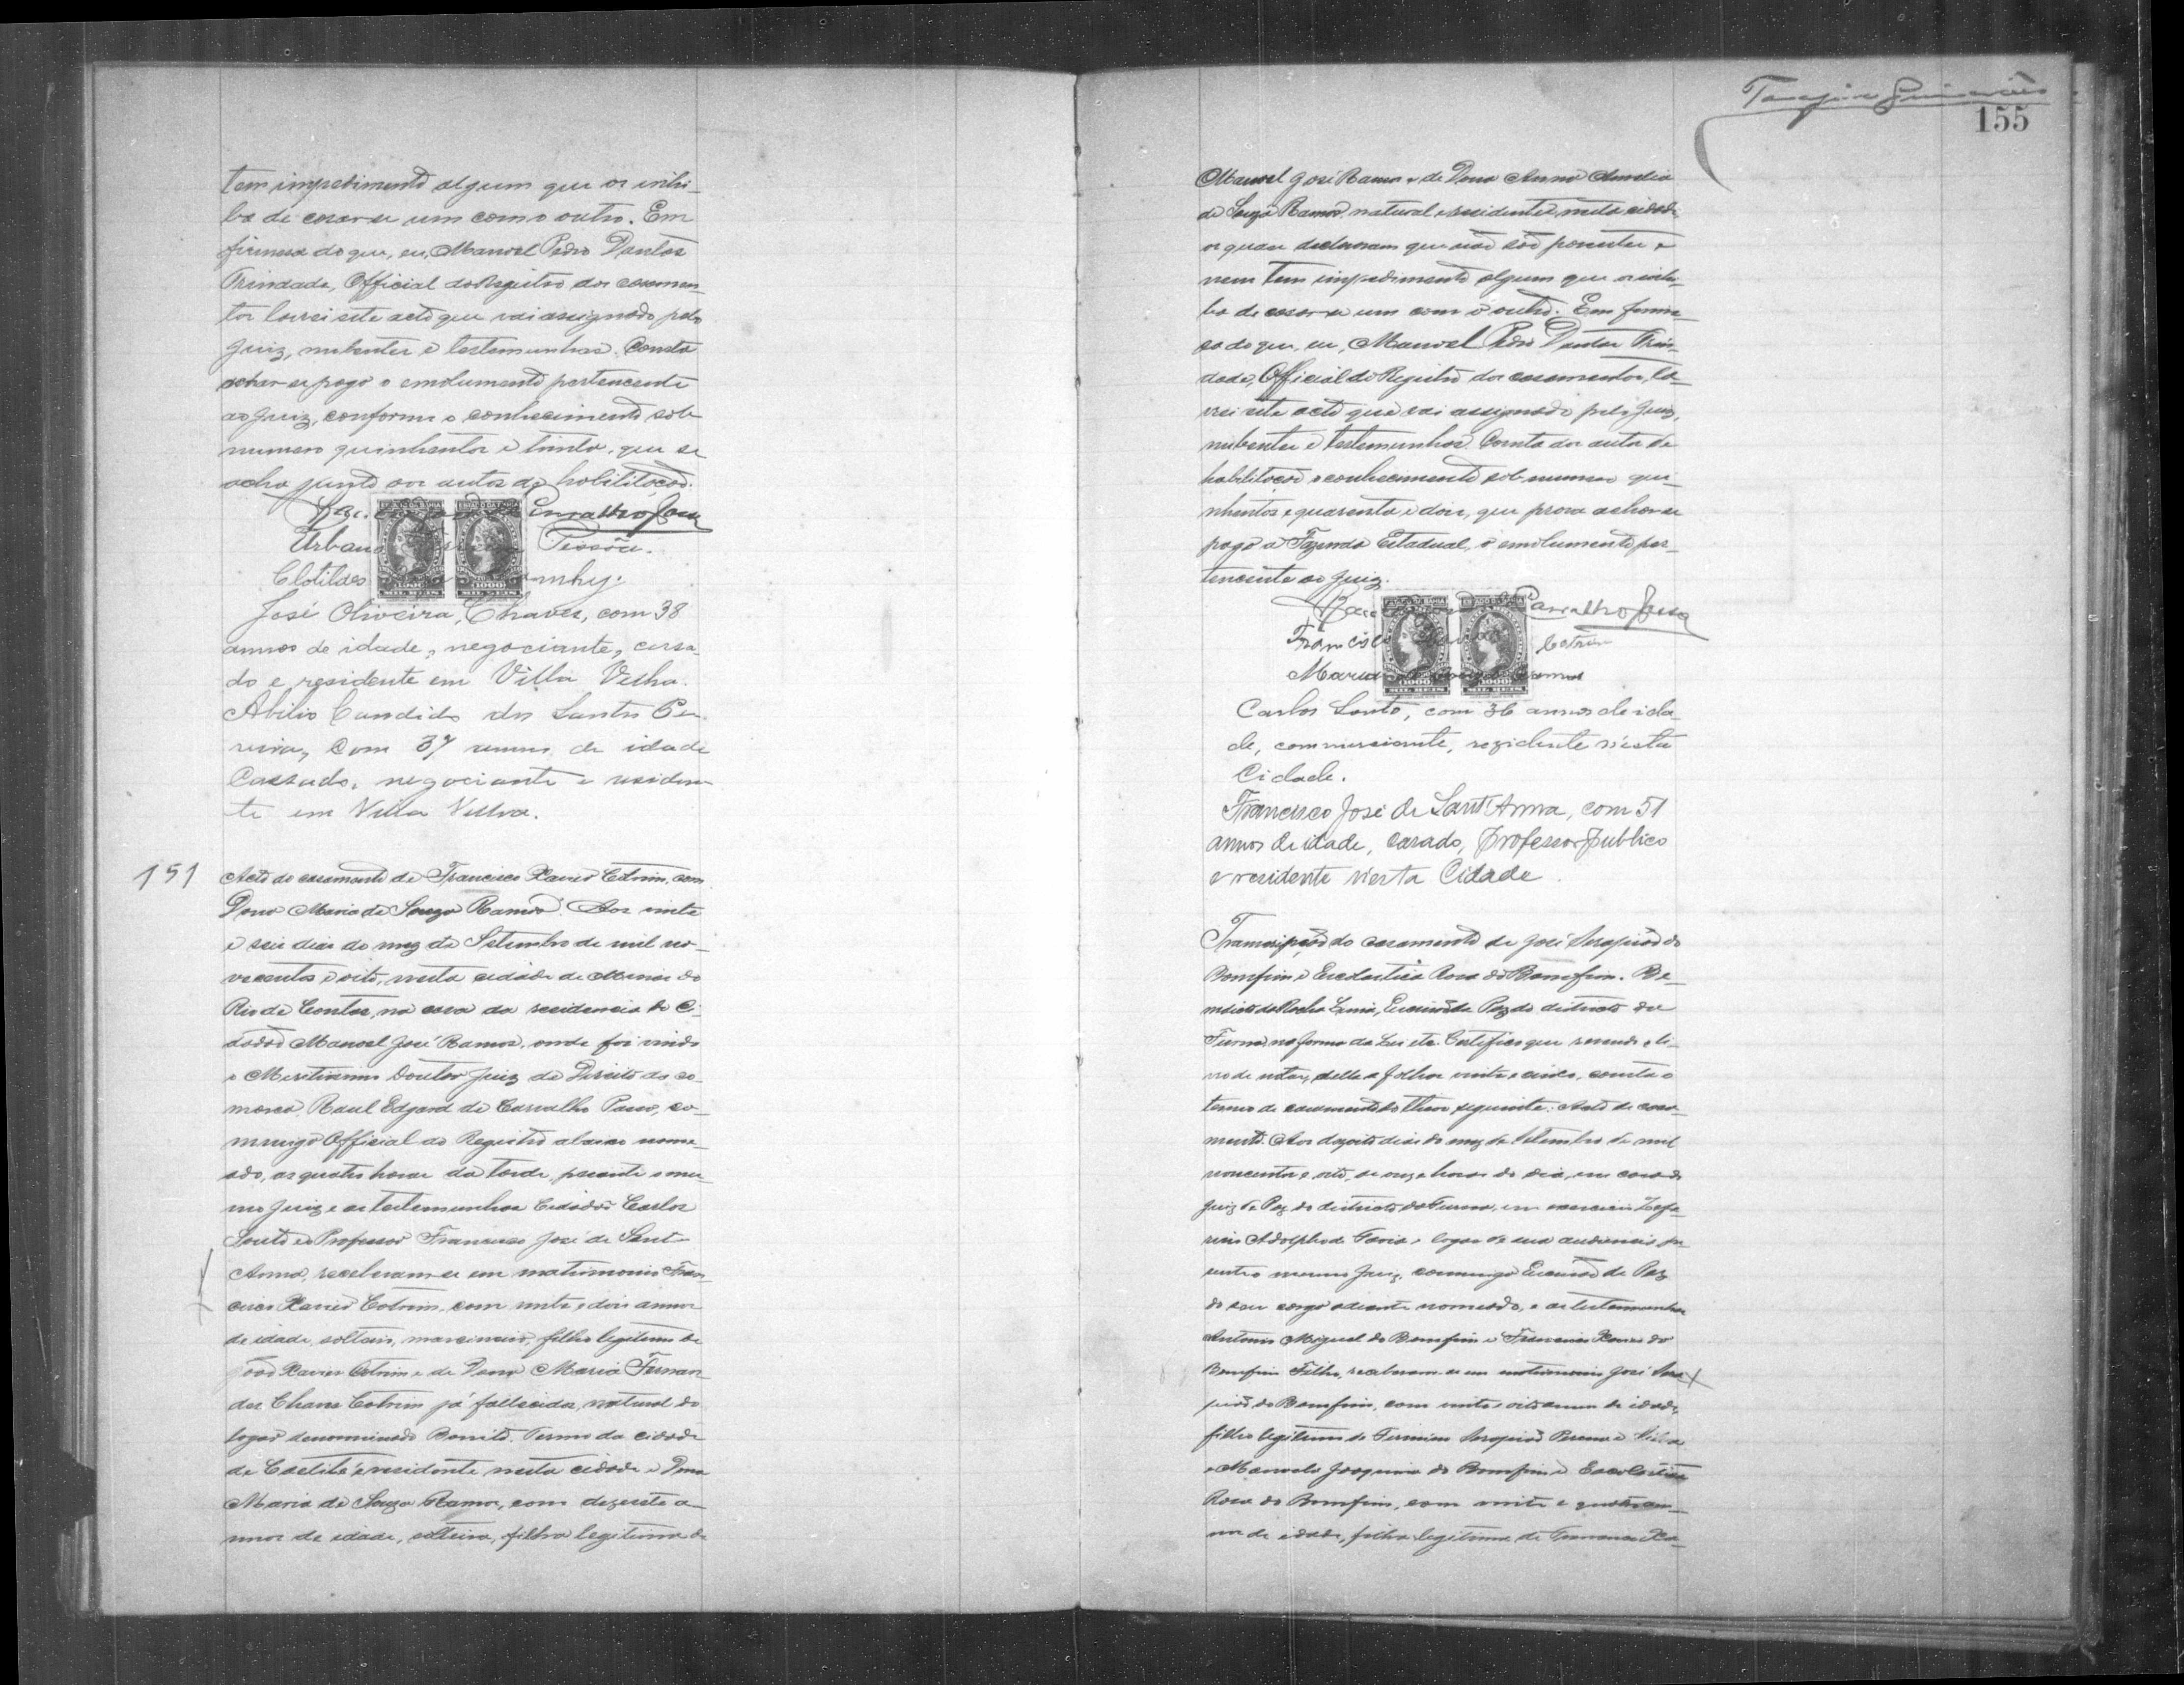 tem impedimento algum que os inhi-
ba de casar-se um com o outro. Em
firmesa do que, eu, Manoel Pedro Dantas
Trindade, Official do Registro dos casamen-
tos lavrei este acto que vai assignado pelo
Juiz, nubentes e testemunhas. Consta
achar-se pago o emolumento pertencente
ao Juiz, conforme o conhecimento sob
numero quinhentos e trinta, que se
acha junto aos autos de habilitação.
Urbano Pessôa.
Clotildes
José Oliveira Chaves, com 38
annos de idade, negociante, casa-
do e residente em Villa Velha.
Abilio Candido dos Santos Pe-
reira, com 37 annos de idade
Casado, negociante e residen-
te em Villa Velha.
151
Acto do casamento de Francisco Xavier Cotrim, com
Dona Maria de Souza Ramos. Aos vinte
e seis dias do mez de Setembro de mil no-
vecentos e oito, nesta cidade de Minas do
Rio de Contas, na casa da residencia do Ci-
dadão Manoel José Ramos, onde foi vindo
o Meritissimo Doutor Juiz de Direito da co-
marca Raul Edgard de Carvalho Passos, co-
migo Official do Registro abaixo nome-
ado, as quatro horas da tarde, perante o mes-
mo Juiz e as testemunhas Cidadão Carlos
Souto e o Professor Francisco José de Sant-
Anna, receberam-se em matrimonio Fran-
cisco Xavier Cotrim, com vinte e dois annos
de idade, solteiro, marcineiro, filho legitimo de
João Xavier Cotrim e de Dona Maria Fernan-
des Chaves Cotrim já fallecidos, natural do
logar denominado Bonito, Termo da cidade
de Caetité e residente nesta cidade e Dona
Maria de Souza Ramos, com dezesete a-
nnos de idade, solteira, filha legitima de
155
Manoel José Ramos e de Dona Anna Amelia
de Souza Ramos, natural e residente nesta cidade
os quaes declararam que não são parentes e
nem tem impedimento algum que os inhi-
ba de casar-se um com o outro. Em firme-
sa do que, eu, Manoel Pedro Dantas Trin-
dade, Official do Registro dos casamentos, la-
vrei este acto que vai assignado pelo Juiz,
nubentes e testemunhas. Consta dos autos de
habilitação o conhecimento sob numero qui-
nhentos e quarenta e dois, que prova achar-se
pago a Fazenda Estadual, o emolumento per-
tencente ao Juiz.
Francisco Xavier Cotrim
Maria de Souza Ramos
Carlos Souto, com 36 annos de ida-
de, commerciante, rezidente n'esta
Cidade.
Francisco José de Sant'Anna, com 51
annos de idade, casado, professor publico
e residente n'esta Cidade.
Transcripção do casamento de José Serapião do
Bomfim e Escolastica Rosa do Bomfim. Be-
nedicto da Rocha Lima, Escrivão de Paz do districto da
Furna, na forma da Lei etc. Certifico que revendo o li-
vro de notas, delle a folhas vinte e cinco, consta o
termo de casamento do theor seguinte: Acto de casa-
mento. Aos dezoito dias do mez de Setembro de mil
novecentos e oito, as onze horas do dia, em casa do
Juiz de Paz do districto da Furna, em exercicio Zefe-
rino Adolpho de Faria, logar de sua audiencia pre-
sente o mesmo Juiz, commigo Escrivão de Paz
do seu cargo adiante nomeado, e as testemunhas
Antonio Miguel do Bomfim e Francisco Xavier do
Bomfim Filho, receberam-se em matrimonio José Sera-
pião do Bomfim, com vinte e oito annos de idade,
filho legitimo de Firmino Serapião
e Manoela Joaquina do Bomfim e Escolastica
Rosa do Bomfim, com vinte e quatro an-
nos de idade, filha legitima de Francisco Xa-